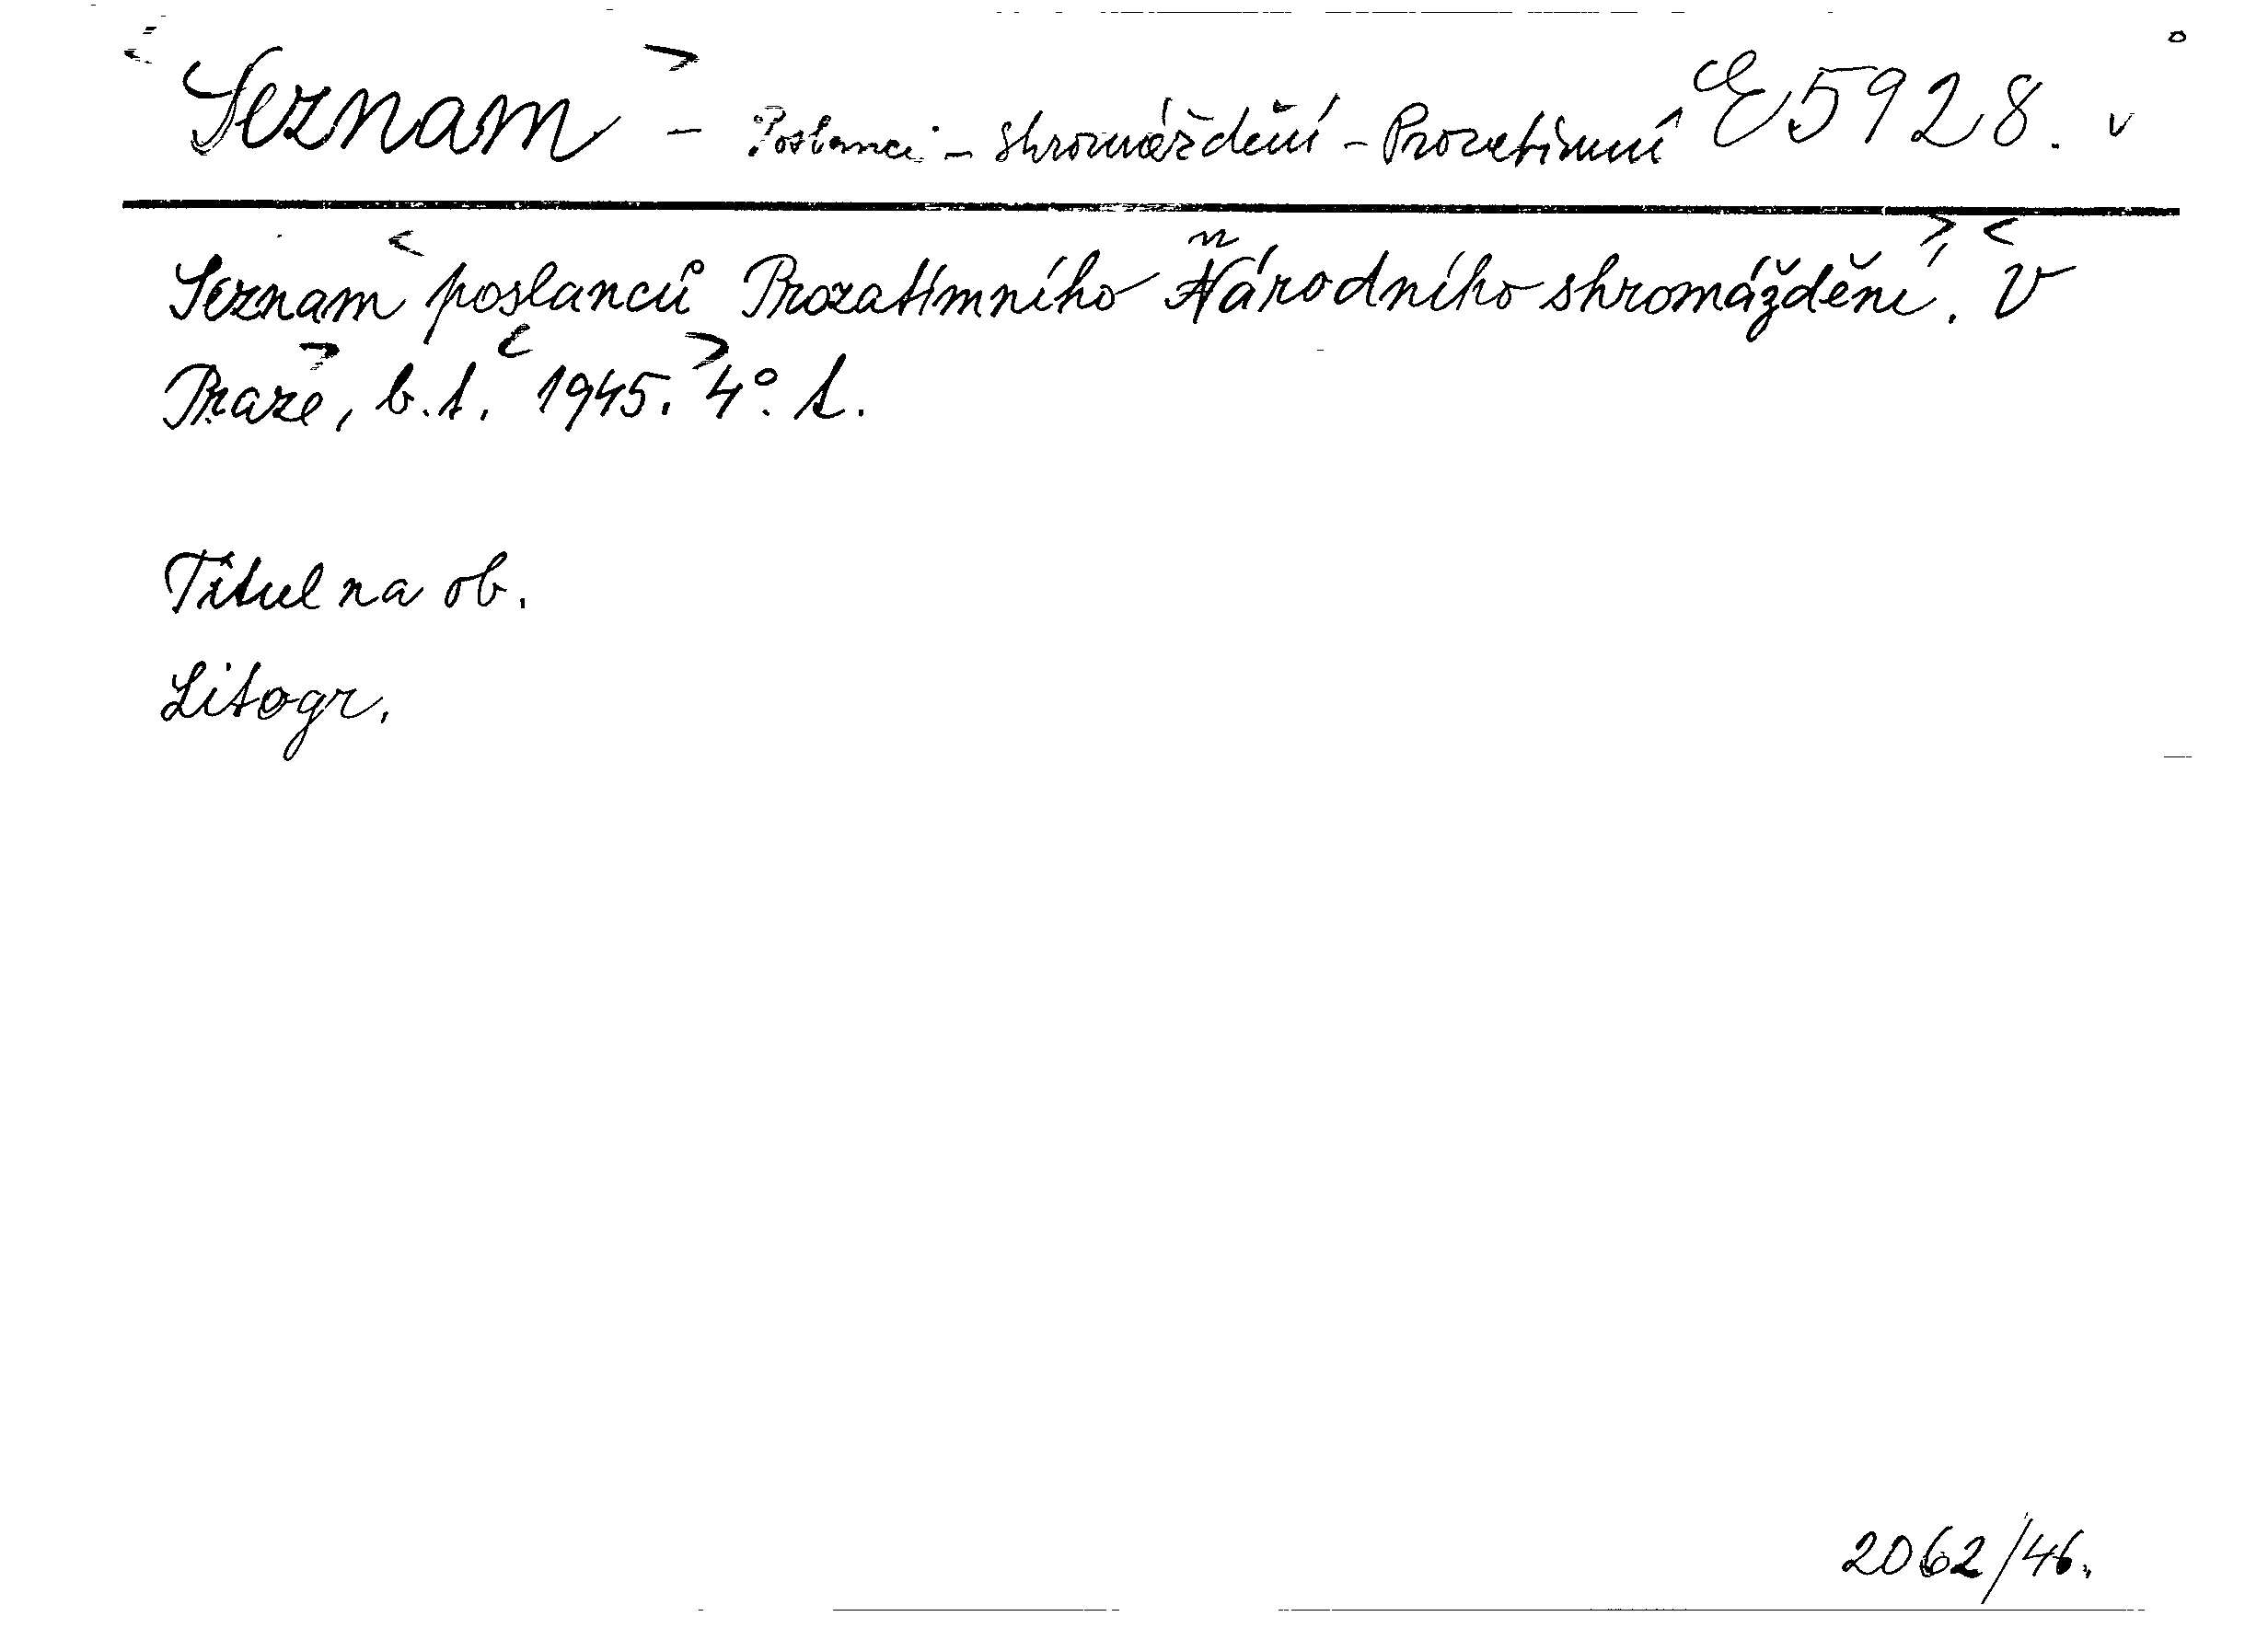 <Seznam> - Poslanci - shromáždění - Prozatimní E 5928. v
Seznam <poslanců Prozatímního Národního shromáždění>. <V
Praze>, b.t. <1945.> 4°. t.
Titul na ob.
Litogr.
2062/46.